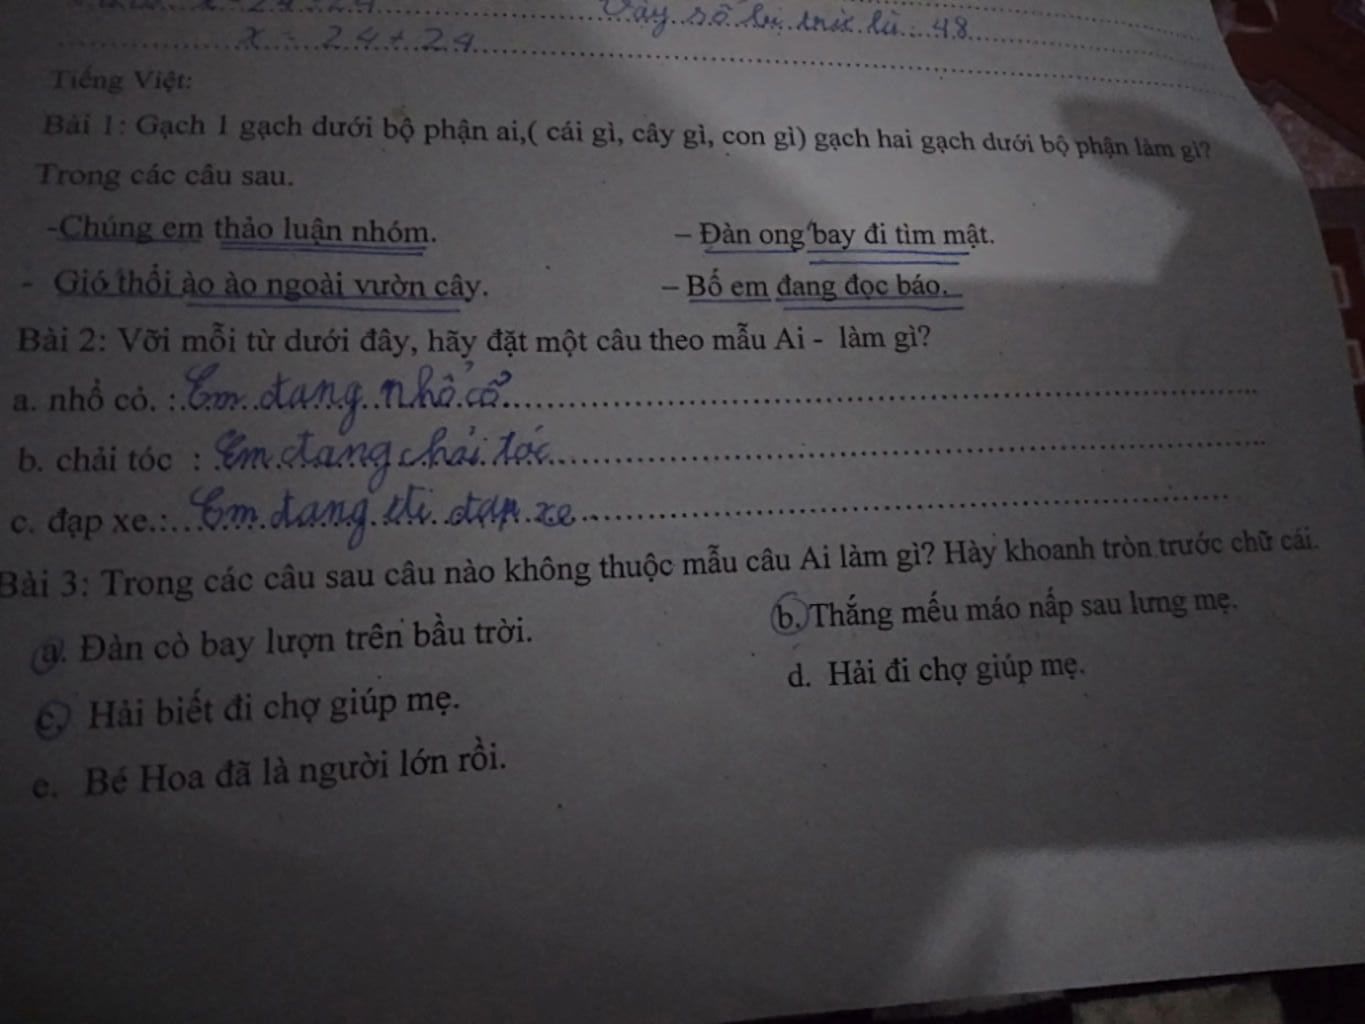 x = 24 + 24
Vậy số bị trừ là: 48
Tiếng Việt:
Bài 1: Gạch 1 gạch dưới bộ phận ai,( cái gì, cây gì, con gì) gạch hai gạch dưới bộ phận làm gì?
Trong các câu sau.
-Chúng em thảo luận nhóm.
– Đàn ong bay đi tìm mật.
- Gió thổi ào ào ngoài vườn cây.
– Bố em đang đọc báo.
Bài 2: Với mỗi từ dưới đây, hãy đặt một câu theo mẫu Ai - làm gì?
a. nhổ cỏ. : Em đang nhổ cỏ
b. chải tóc : Em đang chải tóc
c. đạp xe.: Em đang đi đạp xe
Bài 3: Trong các câu sau câu nào không thuộc mẫu câu Ai làm gì? Hày khoanh tròn trước chữ cái.
a. Đàn cò bay lượn trên bầu trời.
b. Thắng mếu máo nấp sau lưng mẹ.
c. Hải biết đi chợ giúp mẹ.
d. Hải đi chợ giúp mẹ.
e. Bé Hoa đã là người lớn rồi.